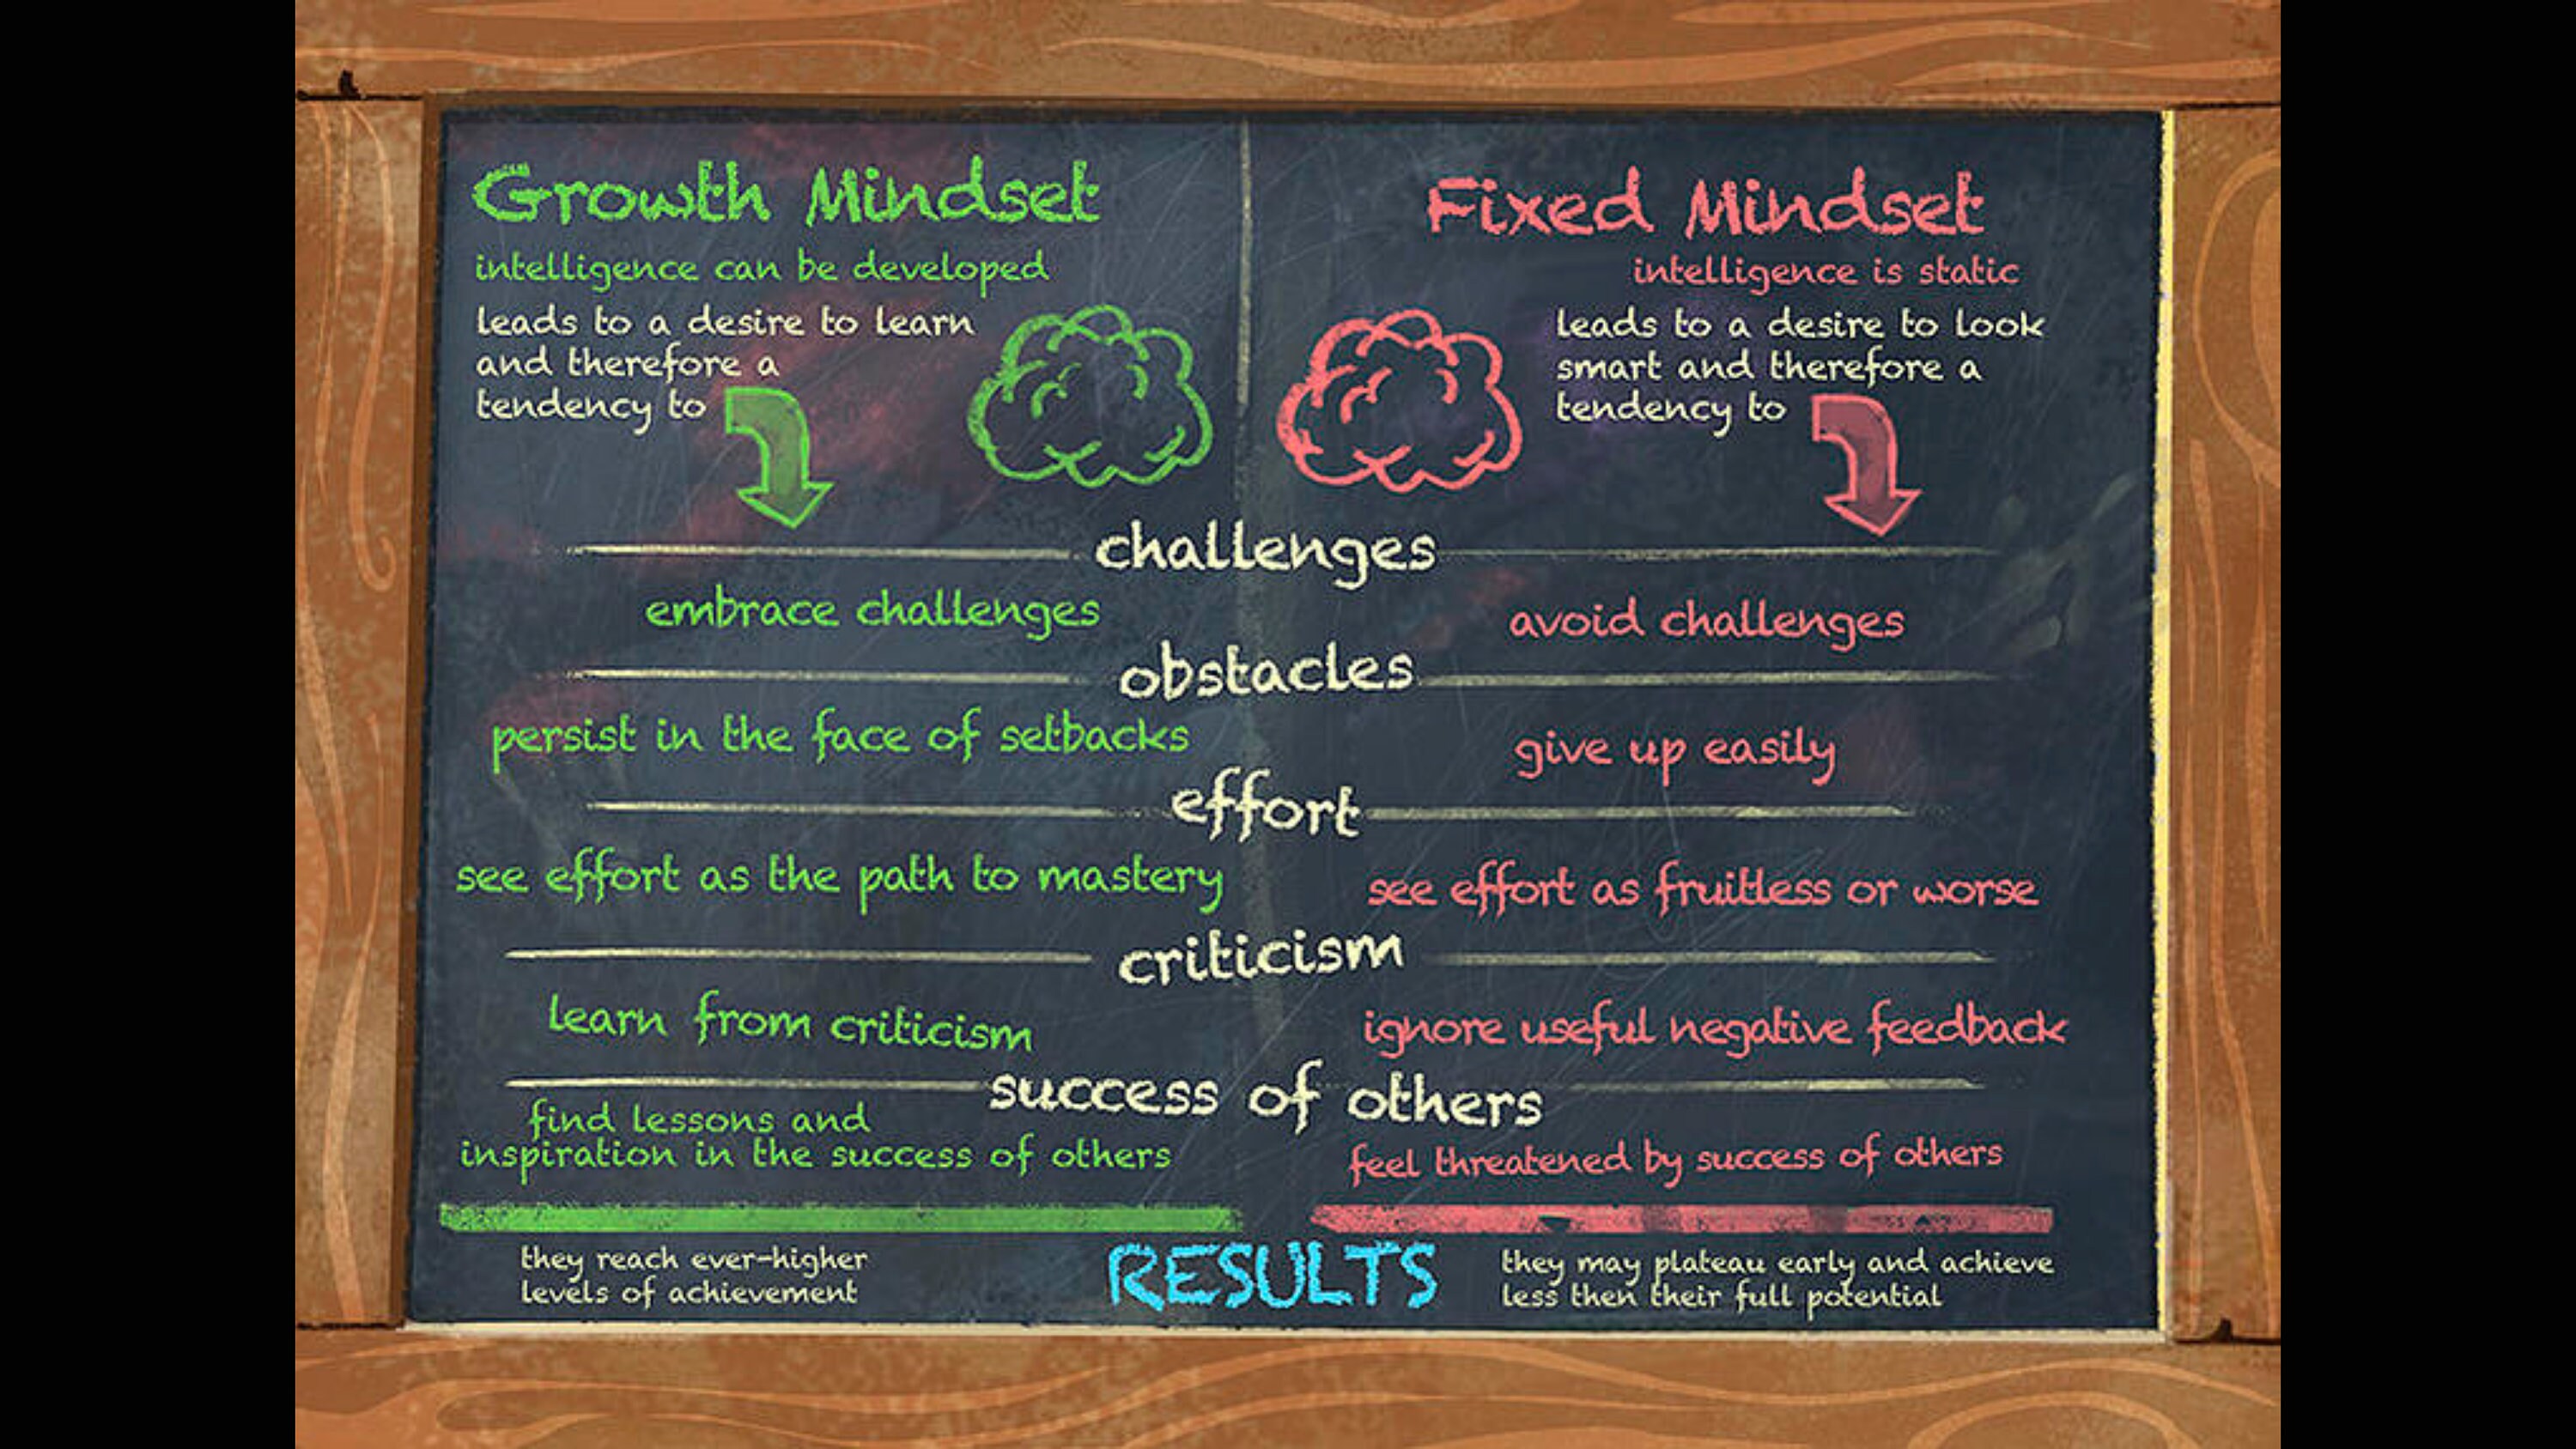 Growth Mindset
intelligence can be developed
leads to a desire to learn
and therefore a
tendency to
Fixed Mindset
intelligence is static
leads to a desire to look
smart and therefore a
tendency to
challenges
embrace challenges
avoid challenges
obstacles
persist in the face of setbacks
give up easily
effort
see effort as the path to mastery
see effort as fruitless or worse
criticism
learn from criticism
ignore useful negative feedback
success of others
find lessons and
inspiration in the success of others
feel threatened by success of others
RESULTS
they reach ever-higher
levels of achievement
they may plateau early and achieve
less then their full potential